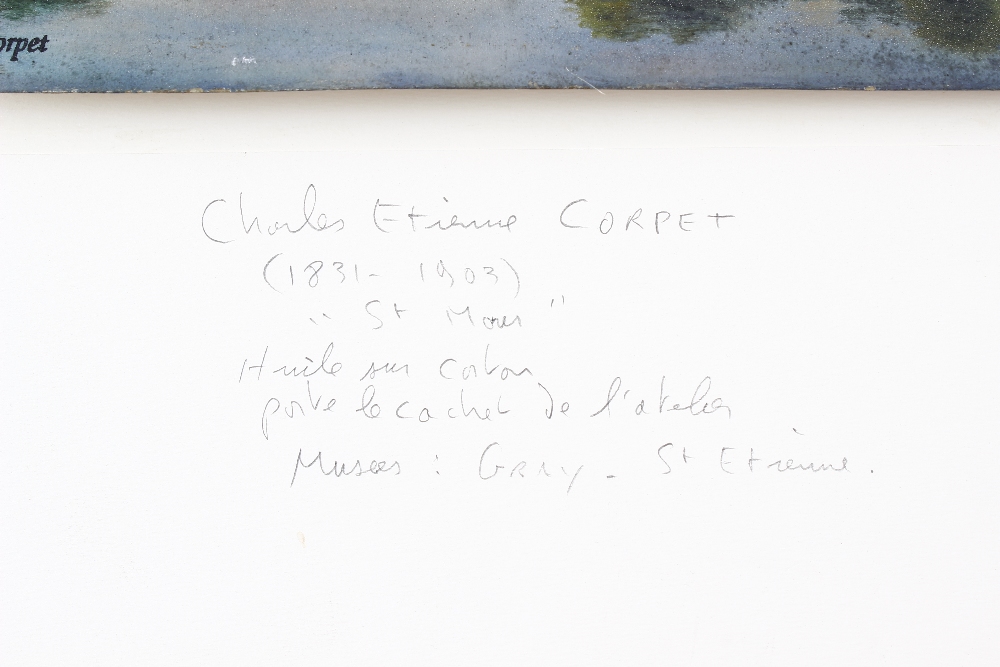 orpet
Charles Etienne CORPET
(1831- 1903)
" St Maur "
Huile sur carton
porte le cachet de l'atelier
Musees : GRAY - St Etienne.